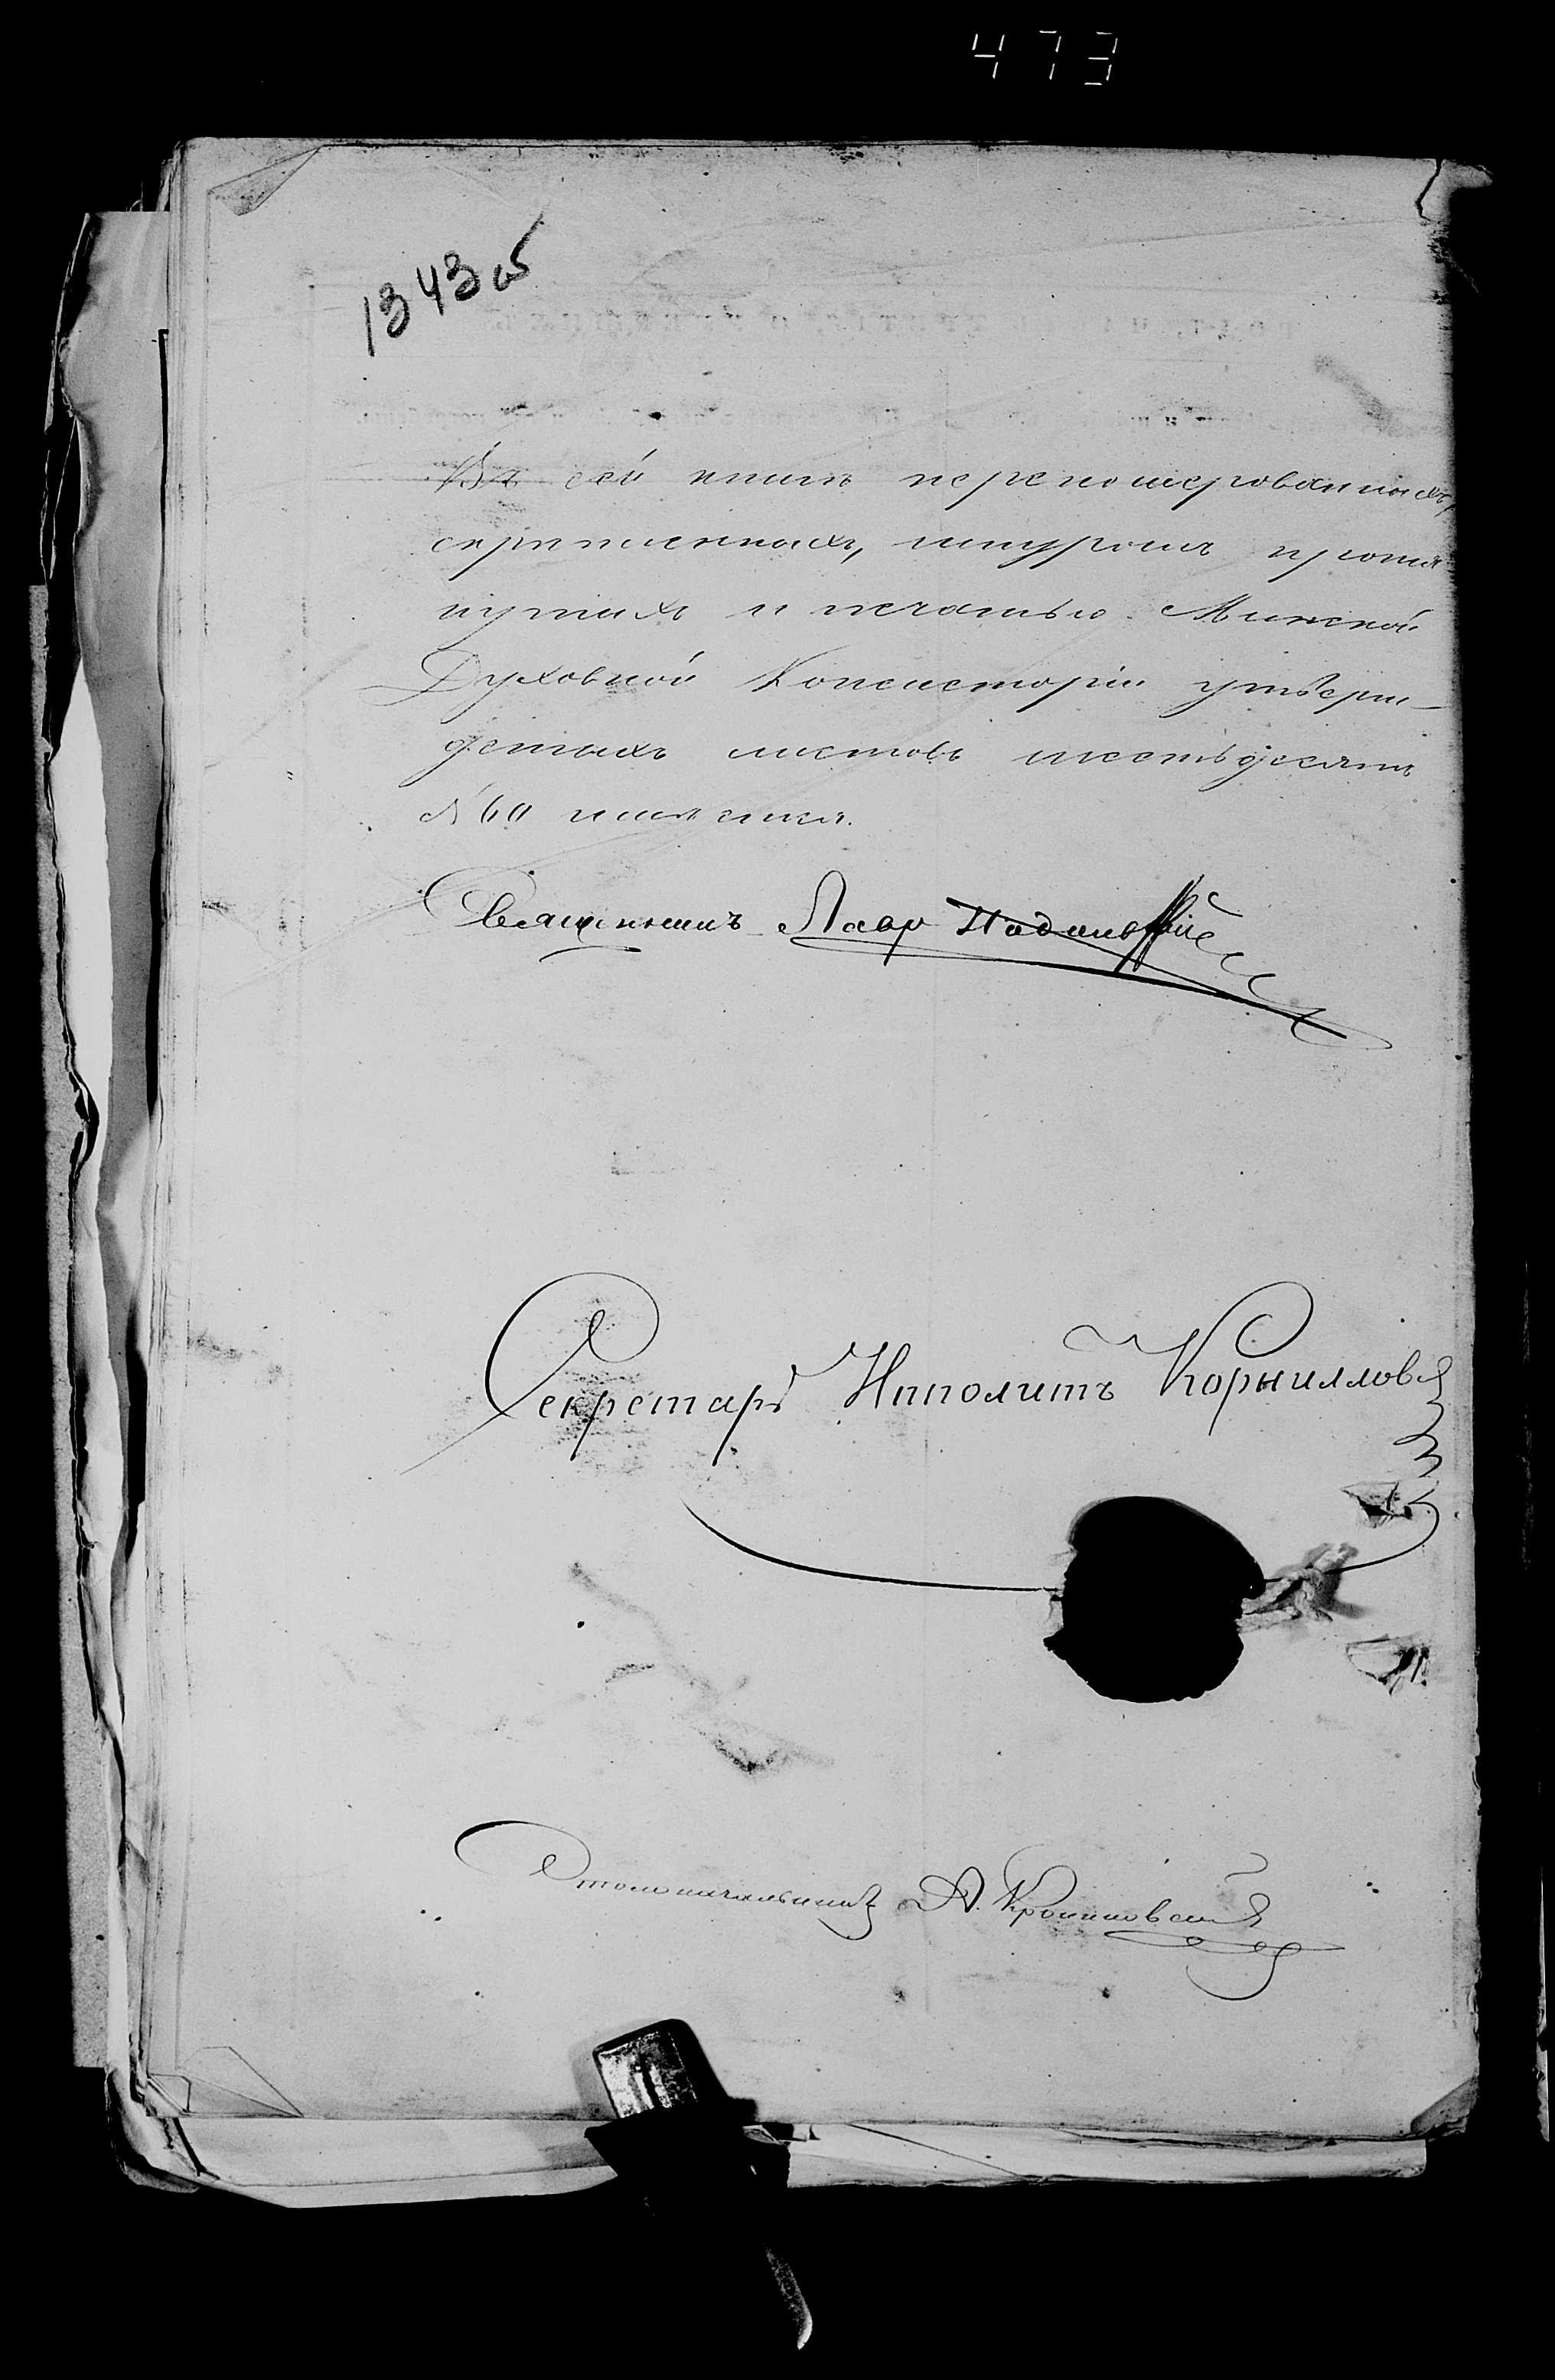 473
1343 об
Въ сей книгѣ перенумерованныхъ,
скрѣпленныхъ, шнуромъ протя
нутыхъ и печатью Минской
Духовной Консисторіи утверж-
денныхъ листовъ шестьдесятъ
№ 60 имѣется.
Священникъ Лавр
Секретарь Ипполитъ Корниловъ
Столоначальникъ А.